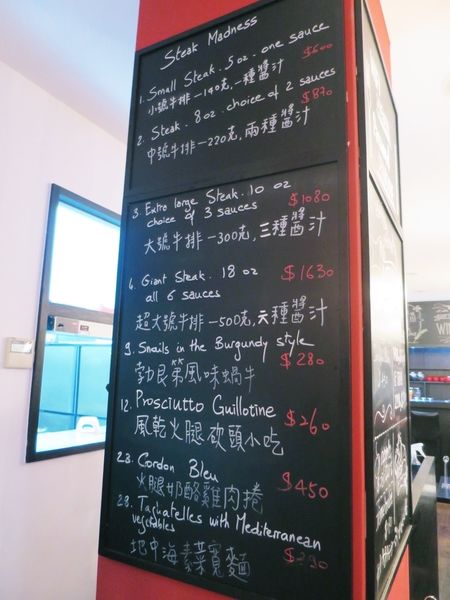 Steak Madness
1. Small Steak. 5 oz. one sauce
$600
小號牛排 —140克, 一種醬汁
2. Steak. 8 oz. choice of 2 sauces
$870
中號牛排 —220克, 兩種醬汁
3. Extra large Steak. 10 oz
choice of 3 sauces
$1080
大號牛排 —300克, 三種醬汁
4. Giant Steak. 18 oz
all 6 sauces
$1630
超大號牛排 —500克, 六種醬汁
9. Snails in the Burgundy style
$280
勃艮第風味蝸牛
12. Prosciutto Guillotine
$260
風乾火腿砍頭小吃
23. Cordon Bleu
$450
火腿奶酪雞肉捲
28. Tagliatelles with Mediterranean
vegetables
地中海素菜寬麵
$290